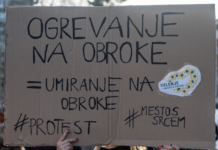 OGREVANJE
NA OBROKE
= UMIRANJE NA
OBROKE
#PROTEST
#MESTO S
SRCEM